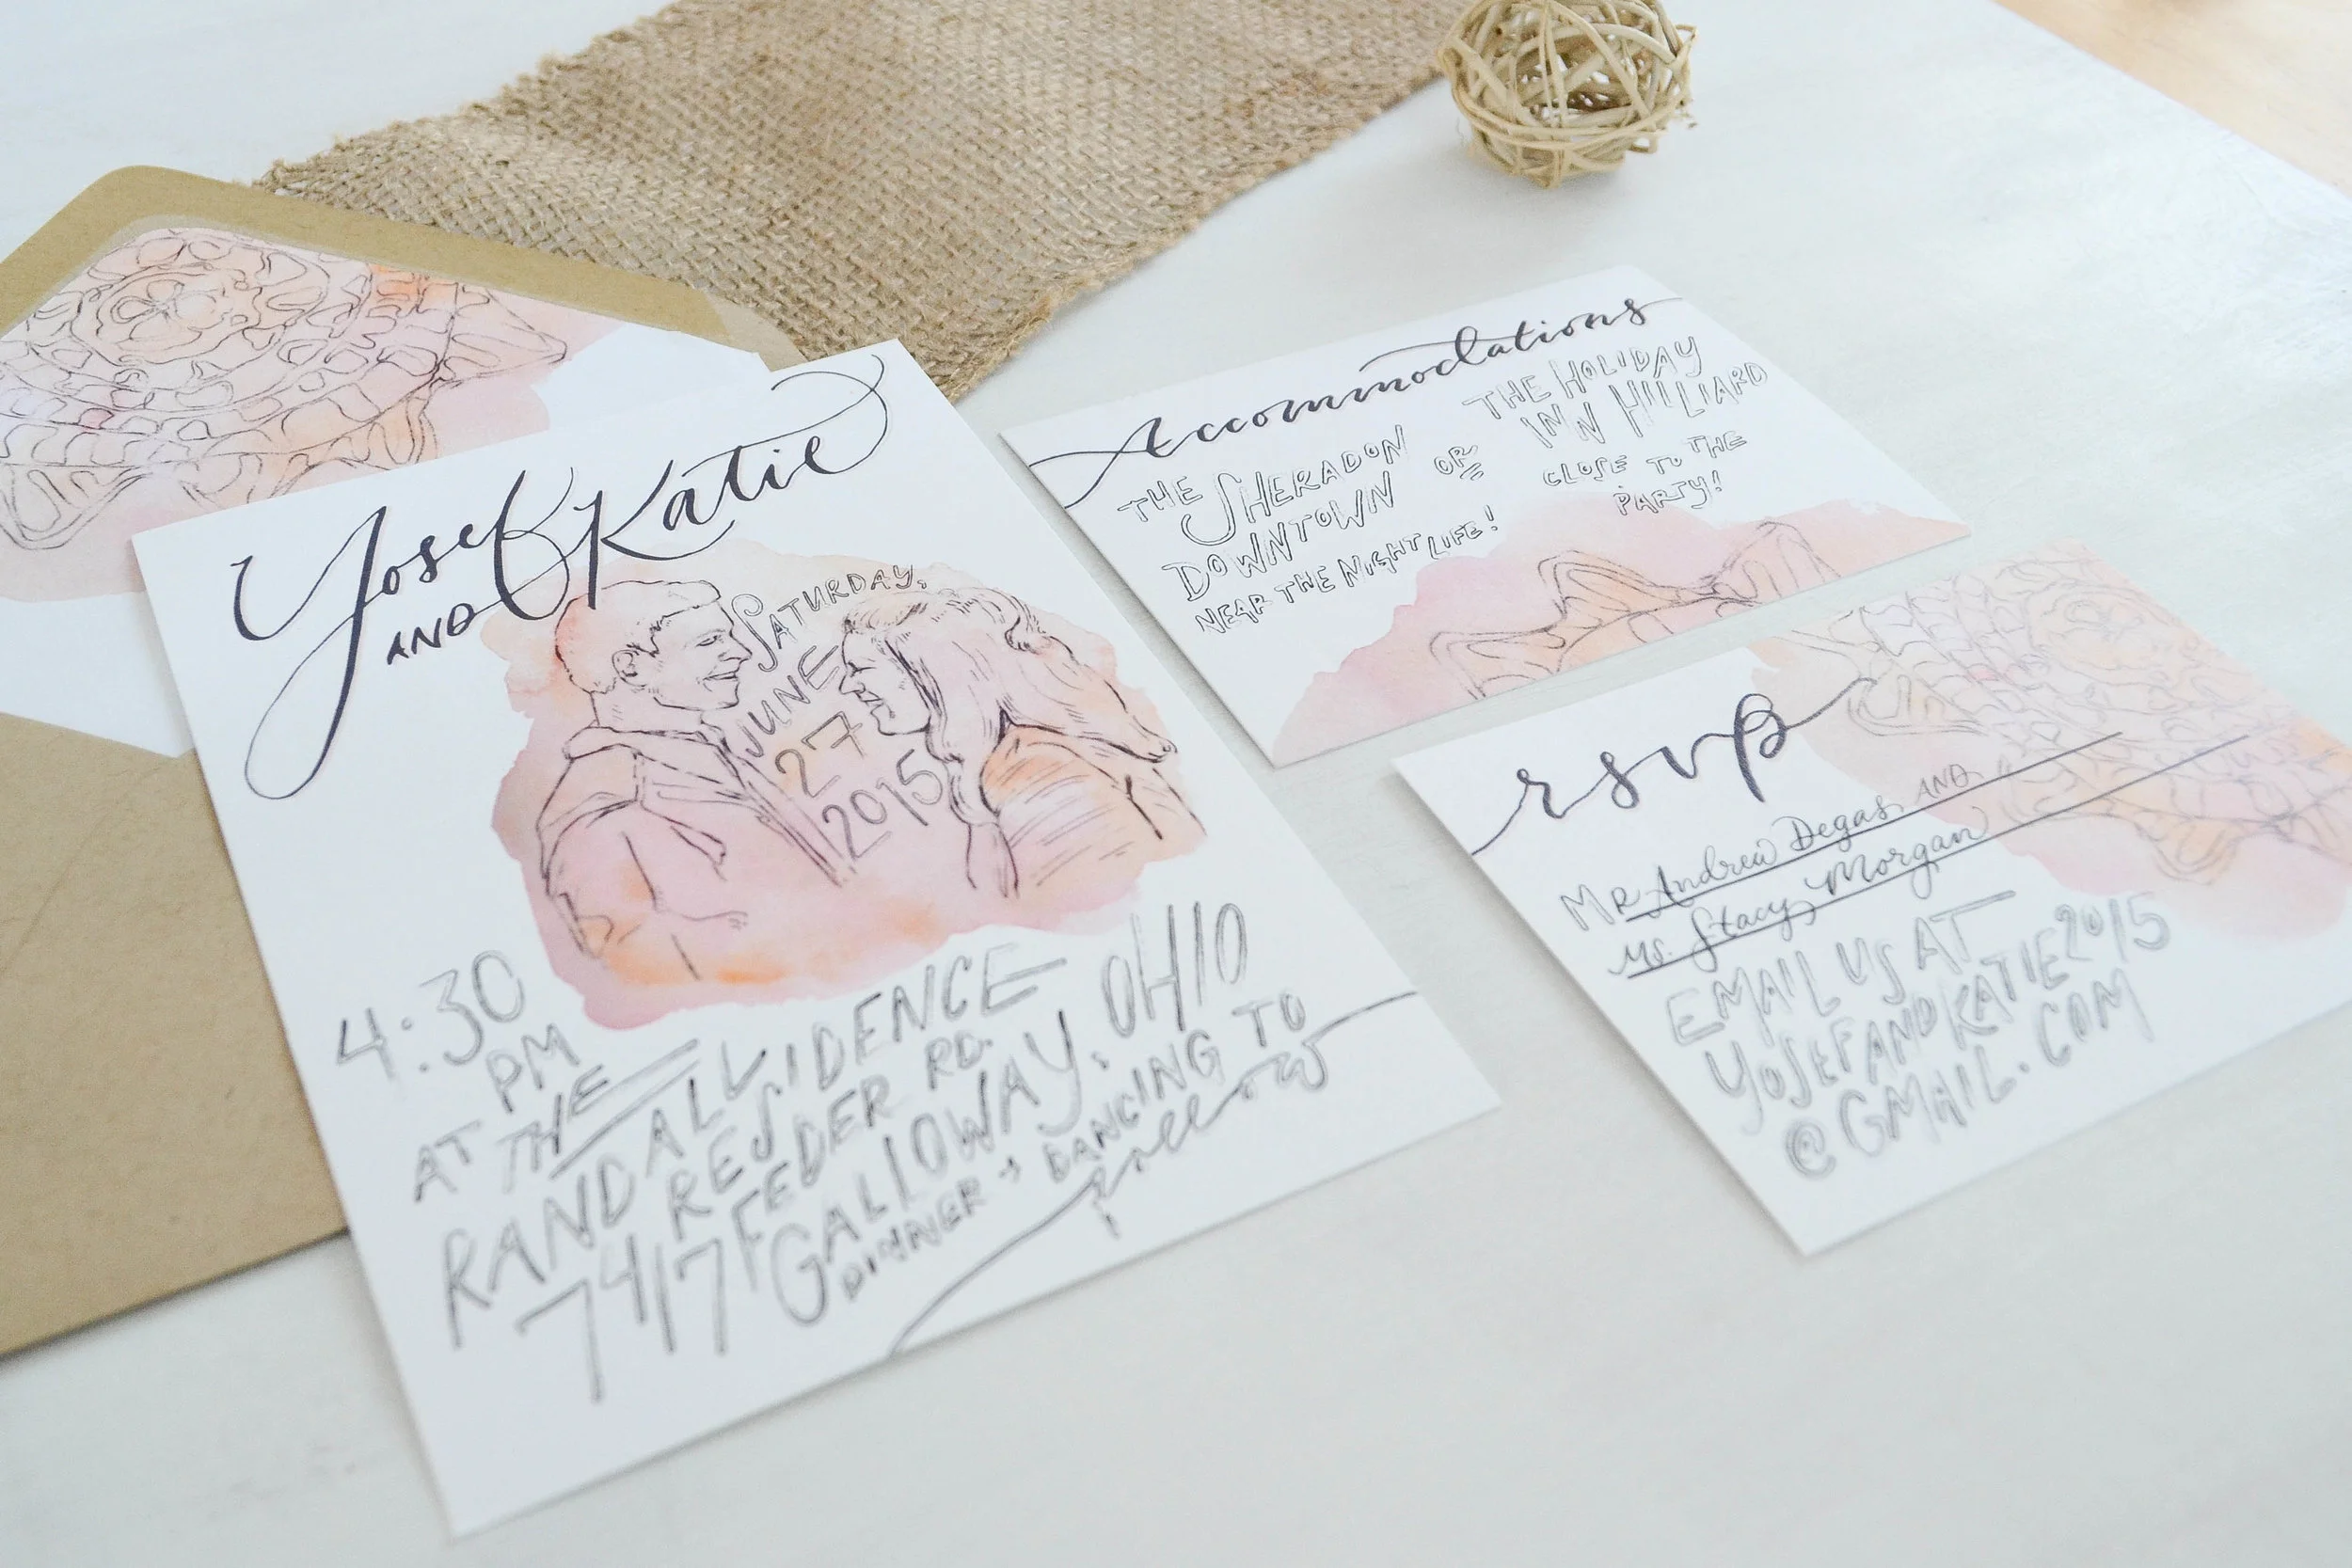 Yosef
AND Katie
SATURDAY,
JUNE
27
2015
4:30
PM
AT THE
RANDALL
RESIDENCE
7417 FEEDER RD.
GALLOWAY, OHIO
DINNER + DANCING TO
follow
Accommodations
THE SHERADON
DOWNTOWN
NEAR THE NIGHT LIFE!
OR
THE HOLIDAY
INN HILLIARD
CLOSE TO THE
PARTY!
rsvp
MR Andrew Degas AND
Ms. Stacy Morgan
EMAIL US AT
YOSEFANDKATIE2015
@GMAIL.COM